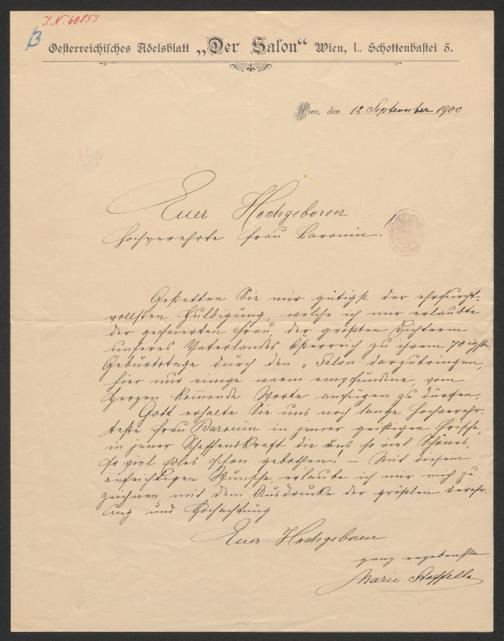 J.N. 60855
B
Oesterreichisches Adelsblatt „Der Salon“ Wien, I., Schottenbastei 5.
Wien, den 12 September 1900
Euer Hochgeboren
Hochverehrte Frau Baronin!
Gestatten Sie mir gütigst der ehrfurcht-
vollsten Huldigung, welche ich mir erlaubte
der gefeierten Frau, der größten Dichterin
unseres Vaterlands Österreich zu ihrem 70 igste
Geburtstage durch den „Salon darzubringen,
hier nur einige warm empfundene, vom
Herzen komende Worte anfügen zu dürfen.
Gott erhalte Sie uns noch lange hochverehr-
teste Frau Baronin in jener geistigen Frische,
in jener Schaffenskraft die uns so viel Schönes,
so viel Edles schon gebothen! – Mit diesem
aufrichtigen Wunsche, erlaube ich mir mich zu
zeichnen mit dem Ausdrucke der größten Verehr-
ung und Hochachtung
Euer Hochgeboren
ganz ergebenste
Marie